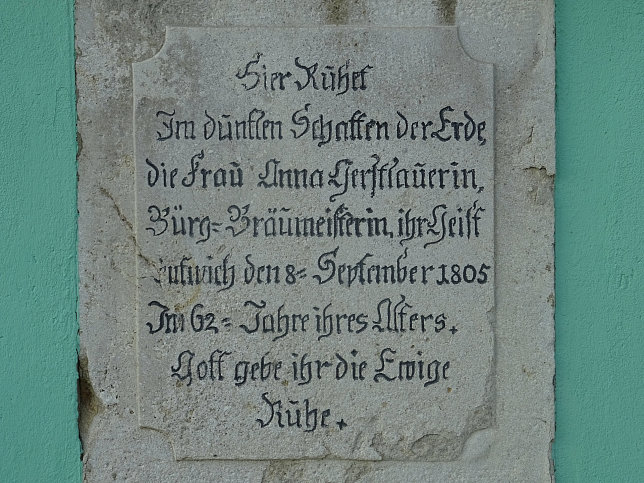 Hier Ruhet
Im dunklen Schatten der Erde,
die Frau Anna Gerstlauerin,
Bürg= Bräumeisterin, ihr Geist
entwich den 8= September 1805
Im 62= Jahre ihres Alters.
Gott gebe ihr die Ewige
Ruhe.